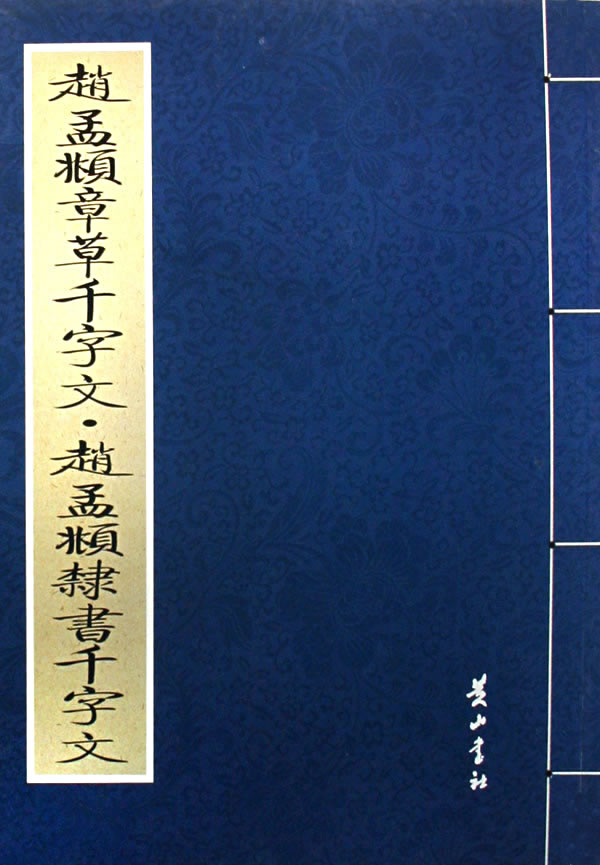 趙孟頫章草千字文·趙孟頫隸書千字文
黄山书社